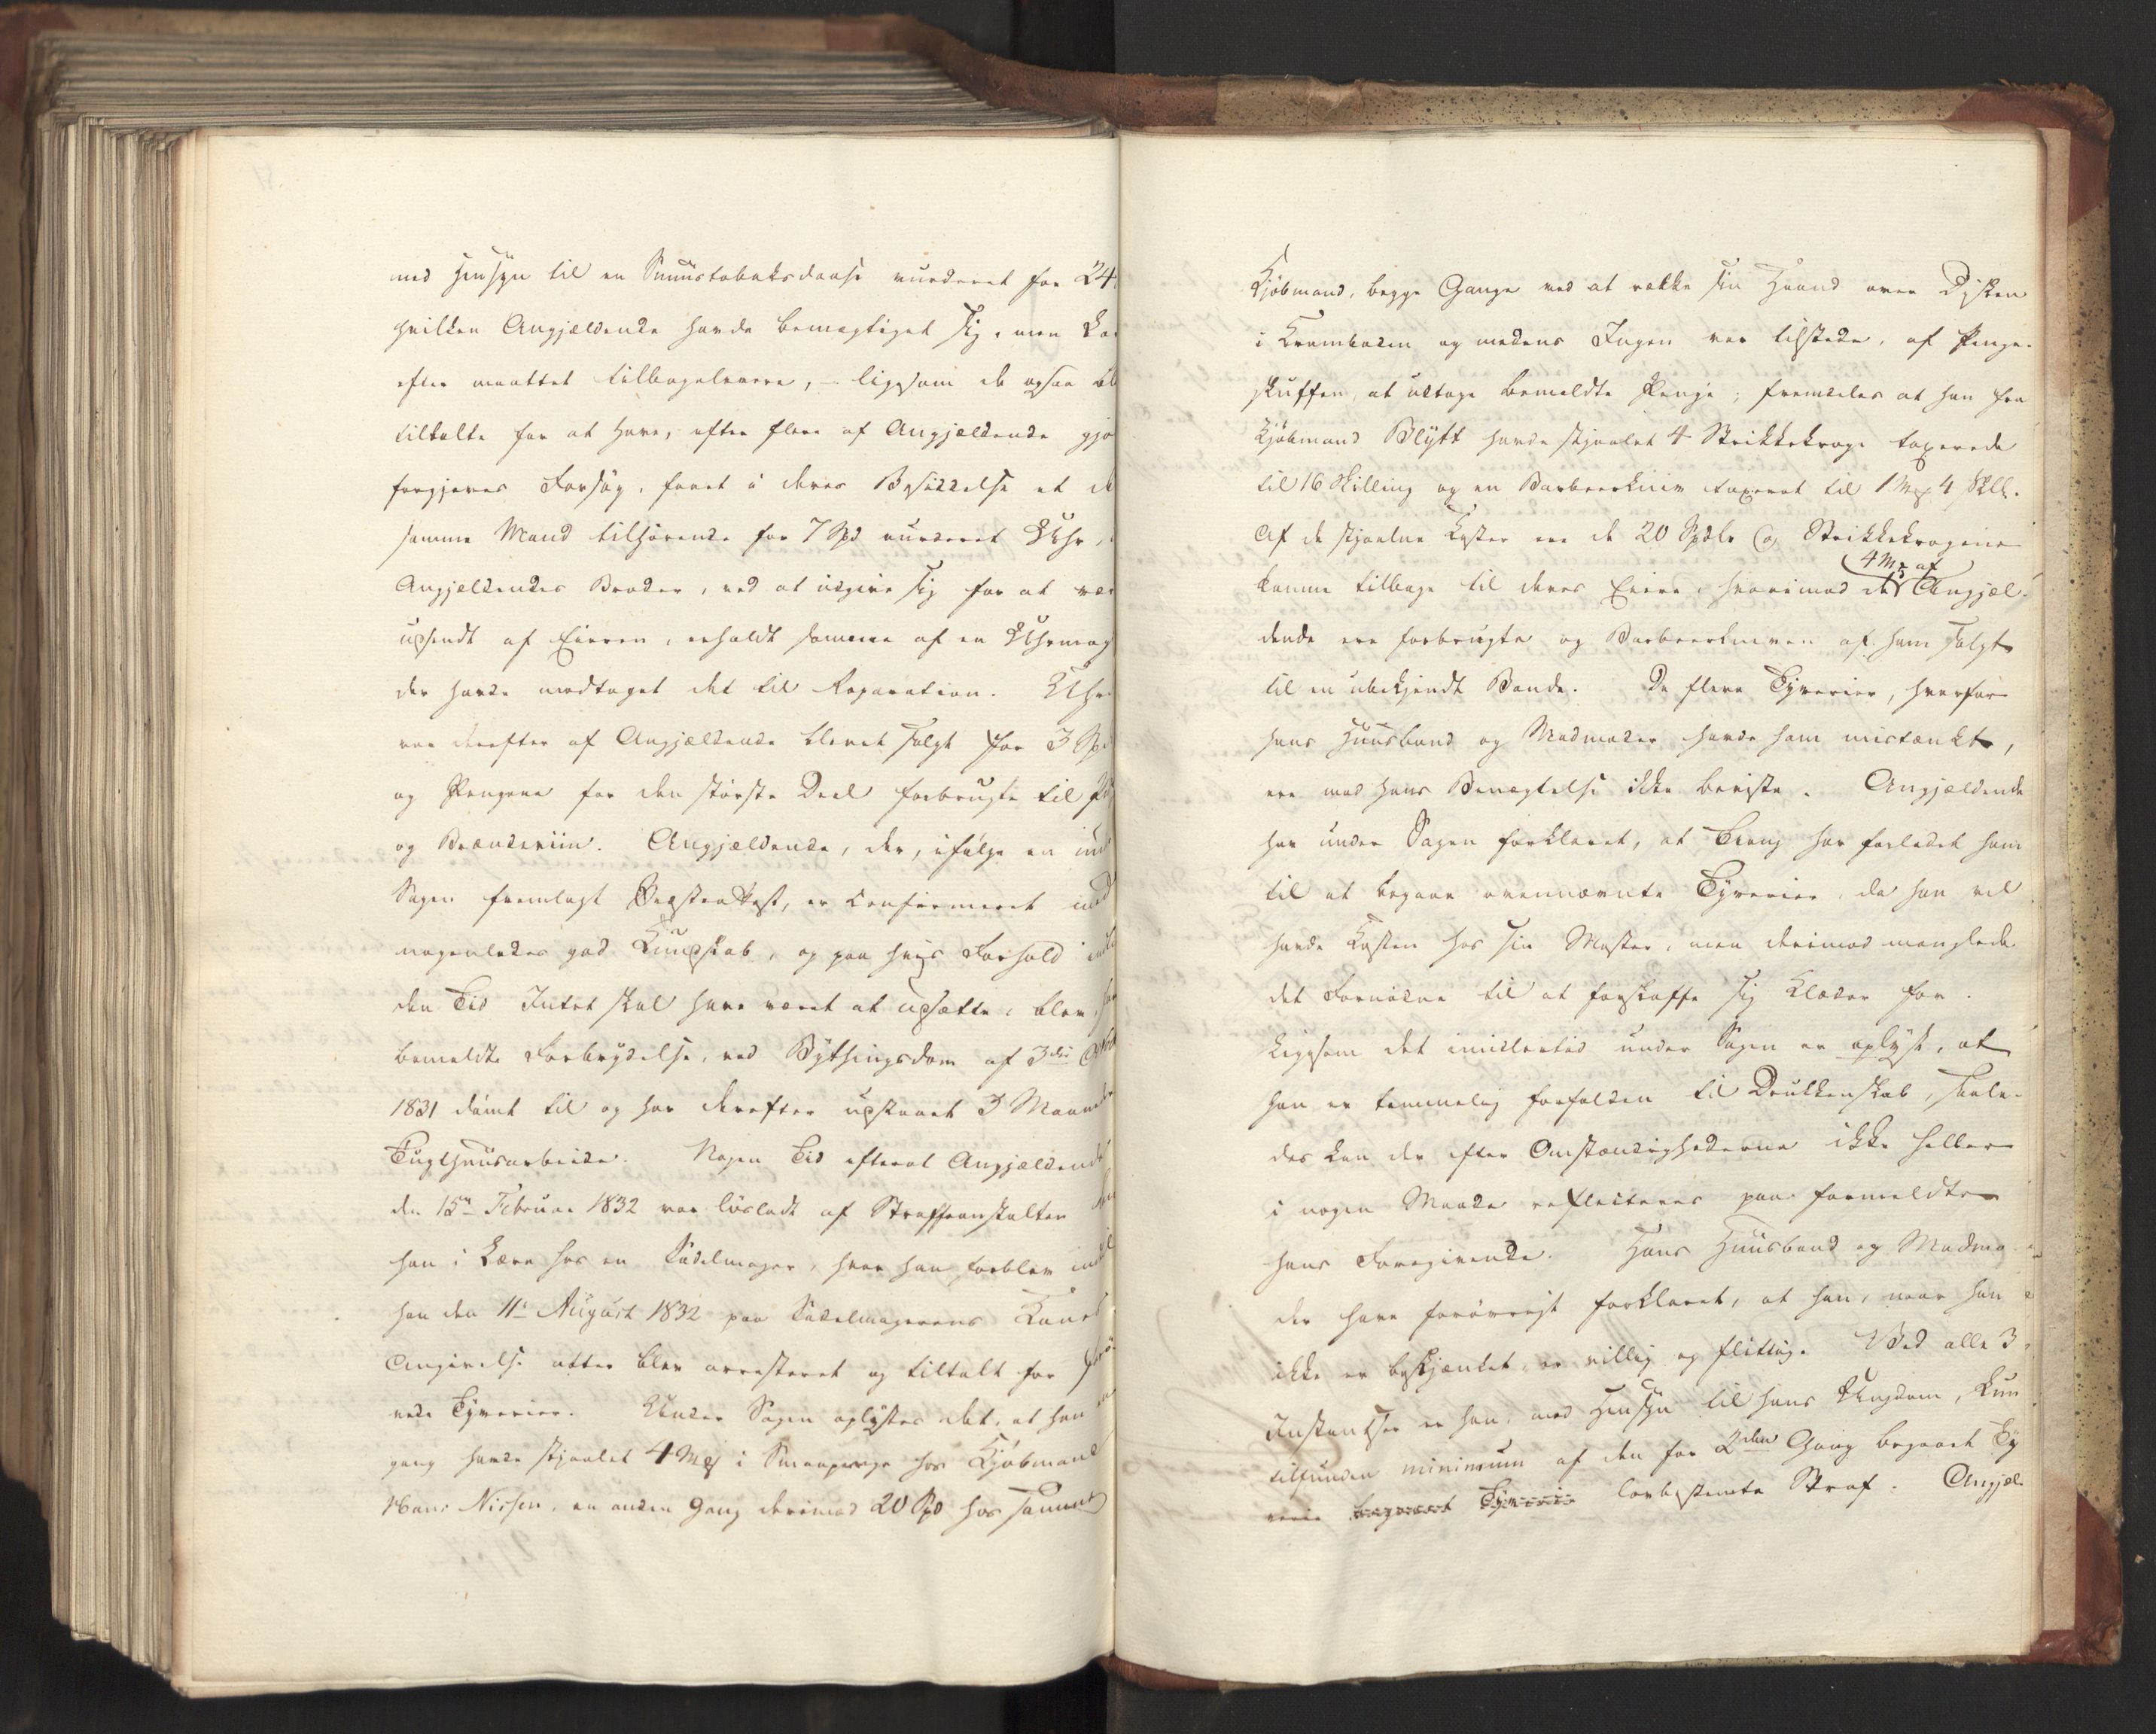 med Hensyn til en Snuustobaksdaase vurderet for 24
hvilken Angjældende havde bemægtiget sig, men
efter maattet tilbagelevere, – ligesom de ogsaa
tiltalte for at have, efter flere af Angjældende
forgjæves Forsøg, faaet i deres Besiddelse et
samme Mand tilhørende for 7 Spd vurderet Uhr,
Angjældendes Broder, ved at udgive sig for at
udsendt af Eieren, erholdt samme af en
der havde modtaget det til Reparation. Uhr
var derefter af Angjældende blevet solgt for 3
og Pengene for den største Deel forbrugte til
og Brændeviin. Angjældende, der, ifølge en
Sagen fremlagt Præsteattest, er confirmeret med
nogenledes god Kundskab, og paa hvis Forhold
den Tid Intet skal have været at udsætte, blev
bemeldte Forbrydelse, ved Bythingsdom af 3die
1831 dømt til og har derefter udstaaet 3 Maaneders
Tugthuusarbeide. Nogen Tid efterat Angjældende
den 15de Februar 1832 var løsladt af Straffeanstalten
han i Lære hos en Sadelmager, hvor han forblev indtil
han den 11te August 1832 paa Sadelmagerens Kones
Angivelse atter blev arresteret og tiltalt for
vede Tyverier. Under Sagen oplystes det, at han
gang havde stjaalet 4 Mrk i Smaapenge hos Kjøbmand
Hans Nissen, en anden Gang derimod 20 Spd hos samme
Kjøbmand, begge Gange ved at række sin Haand over Disken
i Kramboden og medens Ingen var tilstede, af Penge-
skuffen at udtage bemeldte Penge; fremdeles at han fra
Kjøbmand Blytt havde stjaalet 4 Strikkekroge taxerede
til 16 Skilling og en Barbeerkniv taxeret til 1 Mrk 4 Skll.
Af de stjaalne Koster ere de 20 Spdlr og Strikkekrogene
4 Mrk af
komne tilbage til deres Eiere, hvorimod de Angjæl-
dende ere forbrugte og Barbeerkniven af ham solgt
til en ubekjendt Bonde. De flere Tyverier, hvorfor
hans Huusbond og Madmoder havde ham mistænkt,
ere mod hans Benægtelse ikke beviste. Angjældende
har under Sagen forklaret, at Trang har forledet ham
til at begaae ovennævnte Tyverier, da han vel
havde Kosten hos sin Mester, men derimod manglede
det Fornødne til at forskaffe sig Klæder for.
Ligesom det imidlertid under Sagen er oplyst, at
han er temmelig forfalden til Drukkenskab, saale-
des kan der efter Omstændighederne ikke heller
i nogen Maade reflecteres paa formeldte
hans Foregivende. Hans Huusbond og Madmo-
der have forøvrigt forklaret, at han, naar han
ikke er beskjænket, er villig og flittig. Ved alle 3
Instantser er han, med Hensyn til hans Ungdom, kun
tilfunden minimum af den for 2den Gang begaaet Ty
verie begaaet Tyverie lovbestemte Straf. Angjæl